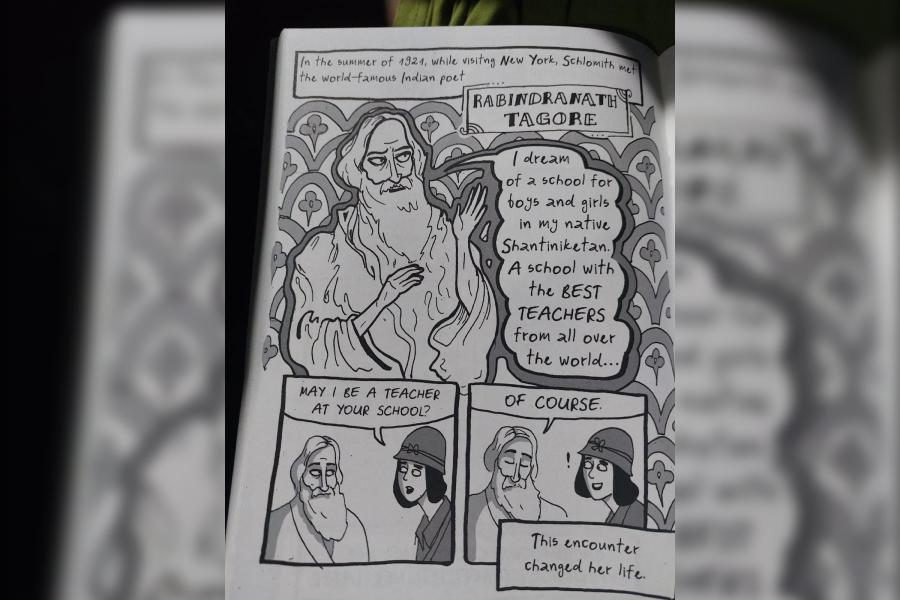 In the summer of 1921, while visitng New York, Schlomith met
the world-famous Indian poet
RABINDRANATH
TAGORE
I dream
of a school for
boys and girls
in my native
Shantiniketan.
A school with
the BEST
TEACHERS
from all over
the world...
MAY I BE A TEACHER
AT YOUR SCHOOL?
OF COURSE.
!
This encounter
changed her life.